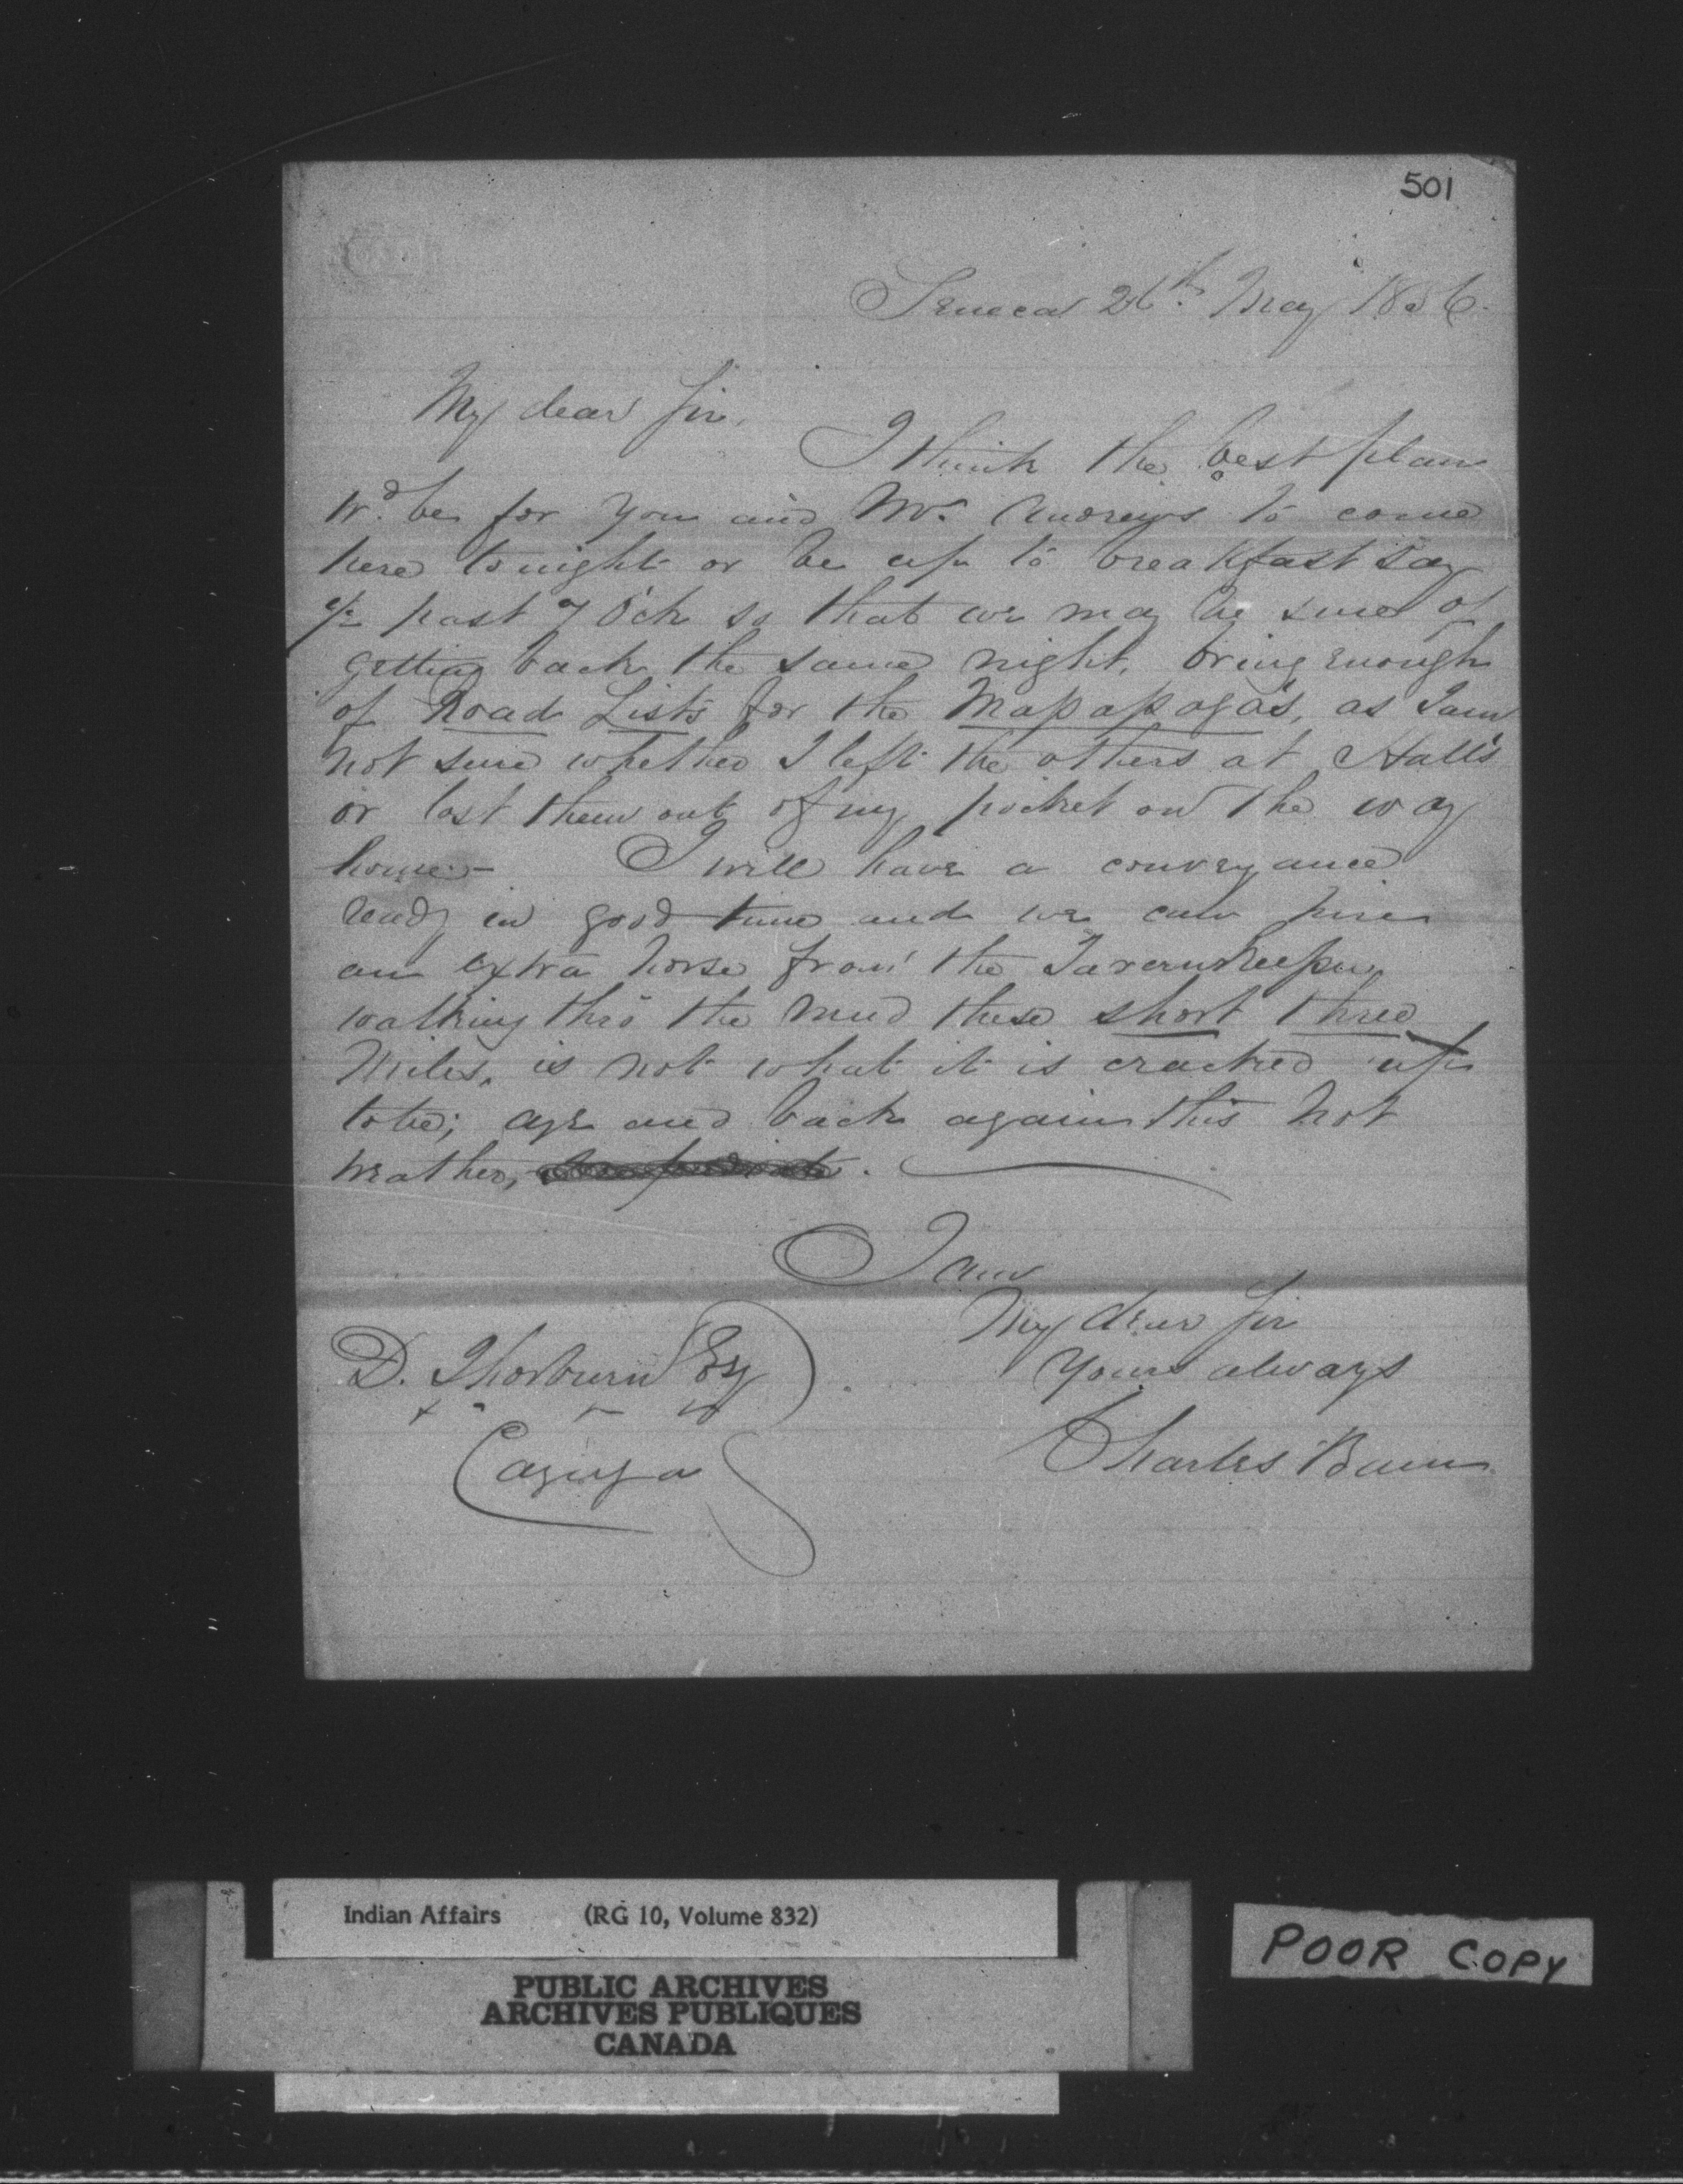 501
Seneca 26th May 1856.
My dear Sir,
I think the best plan
wd. be for you and Mr. Andrews to come
here tonight or be up to breakfast say
½ past 7 O'ck so that we may be sure of
getting back the same night, bring enough
of Road Lists for the Mapapogas, as I am
not sure whether I left the others at Hall's
or lost them out of my pocket on the way
home-   I will have a conveyance
ready in good time and we can hire
an extra horse from the Tavernkeeper
walking thro the mud these short three
Miles, is not what it is cracked up
to be; aye and back again this hot
weather,
I am
My dear Sir
Yours always
Charles Bain
D. Thorburn Esq
Cayuga
Indian Affairs (RG 10, Volume 832)
PUBLIC ARCHIVES
ARCHIVES PUBLIQUES
CANADA
POOR COPY